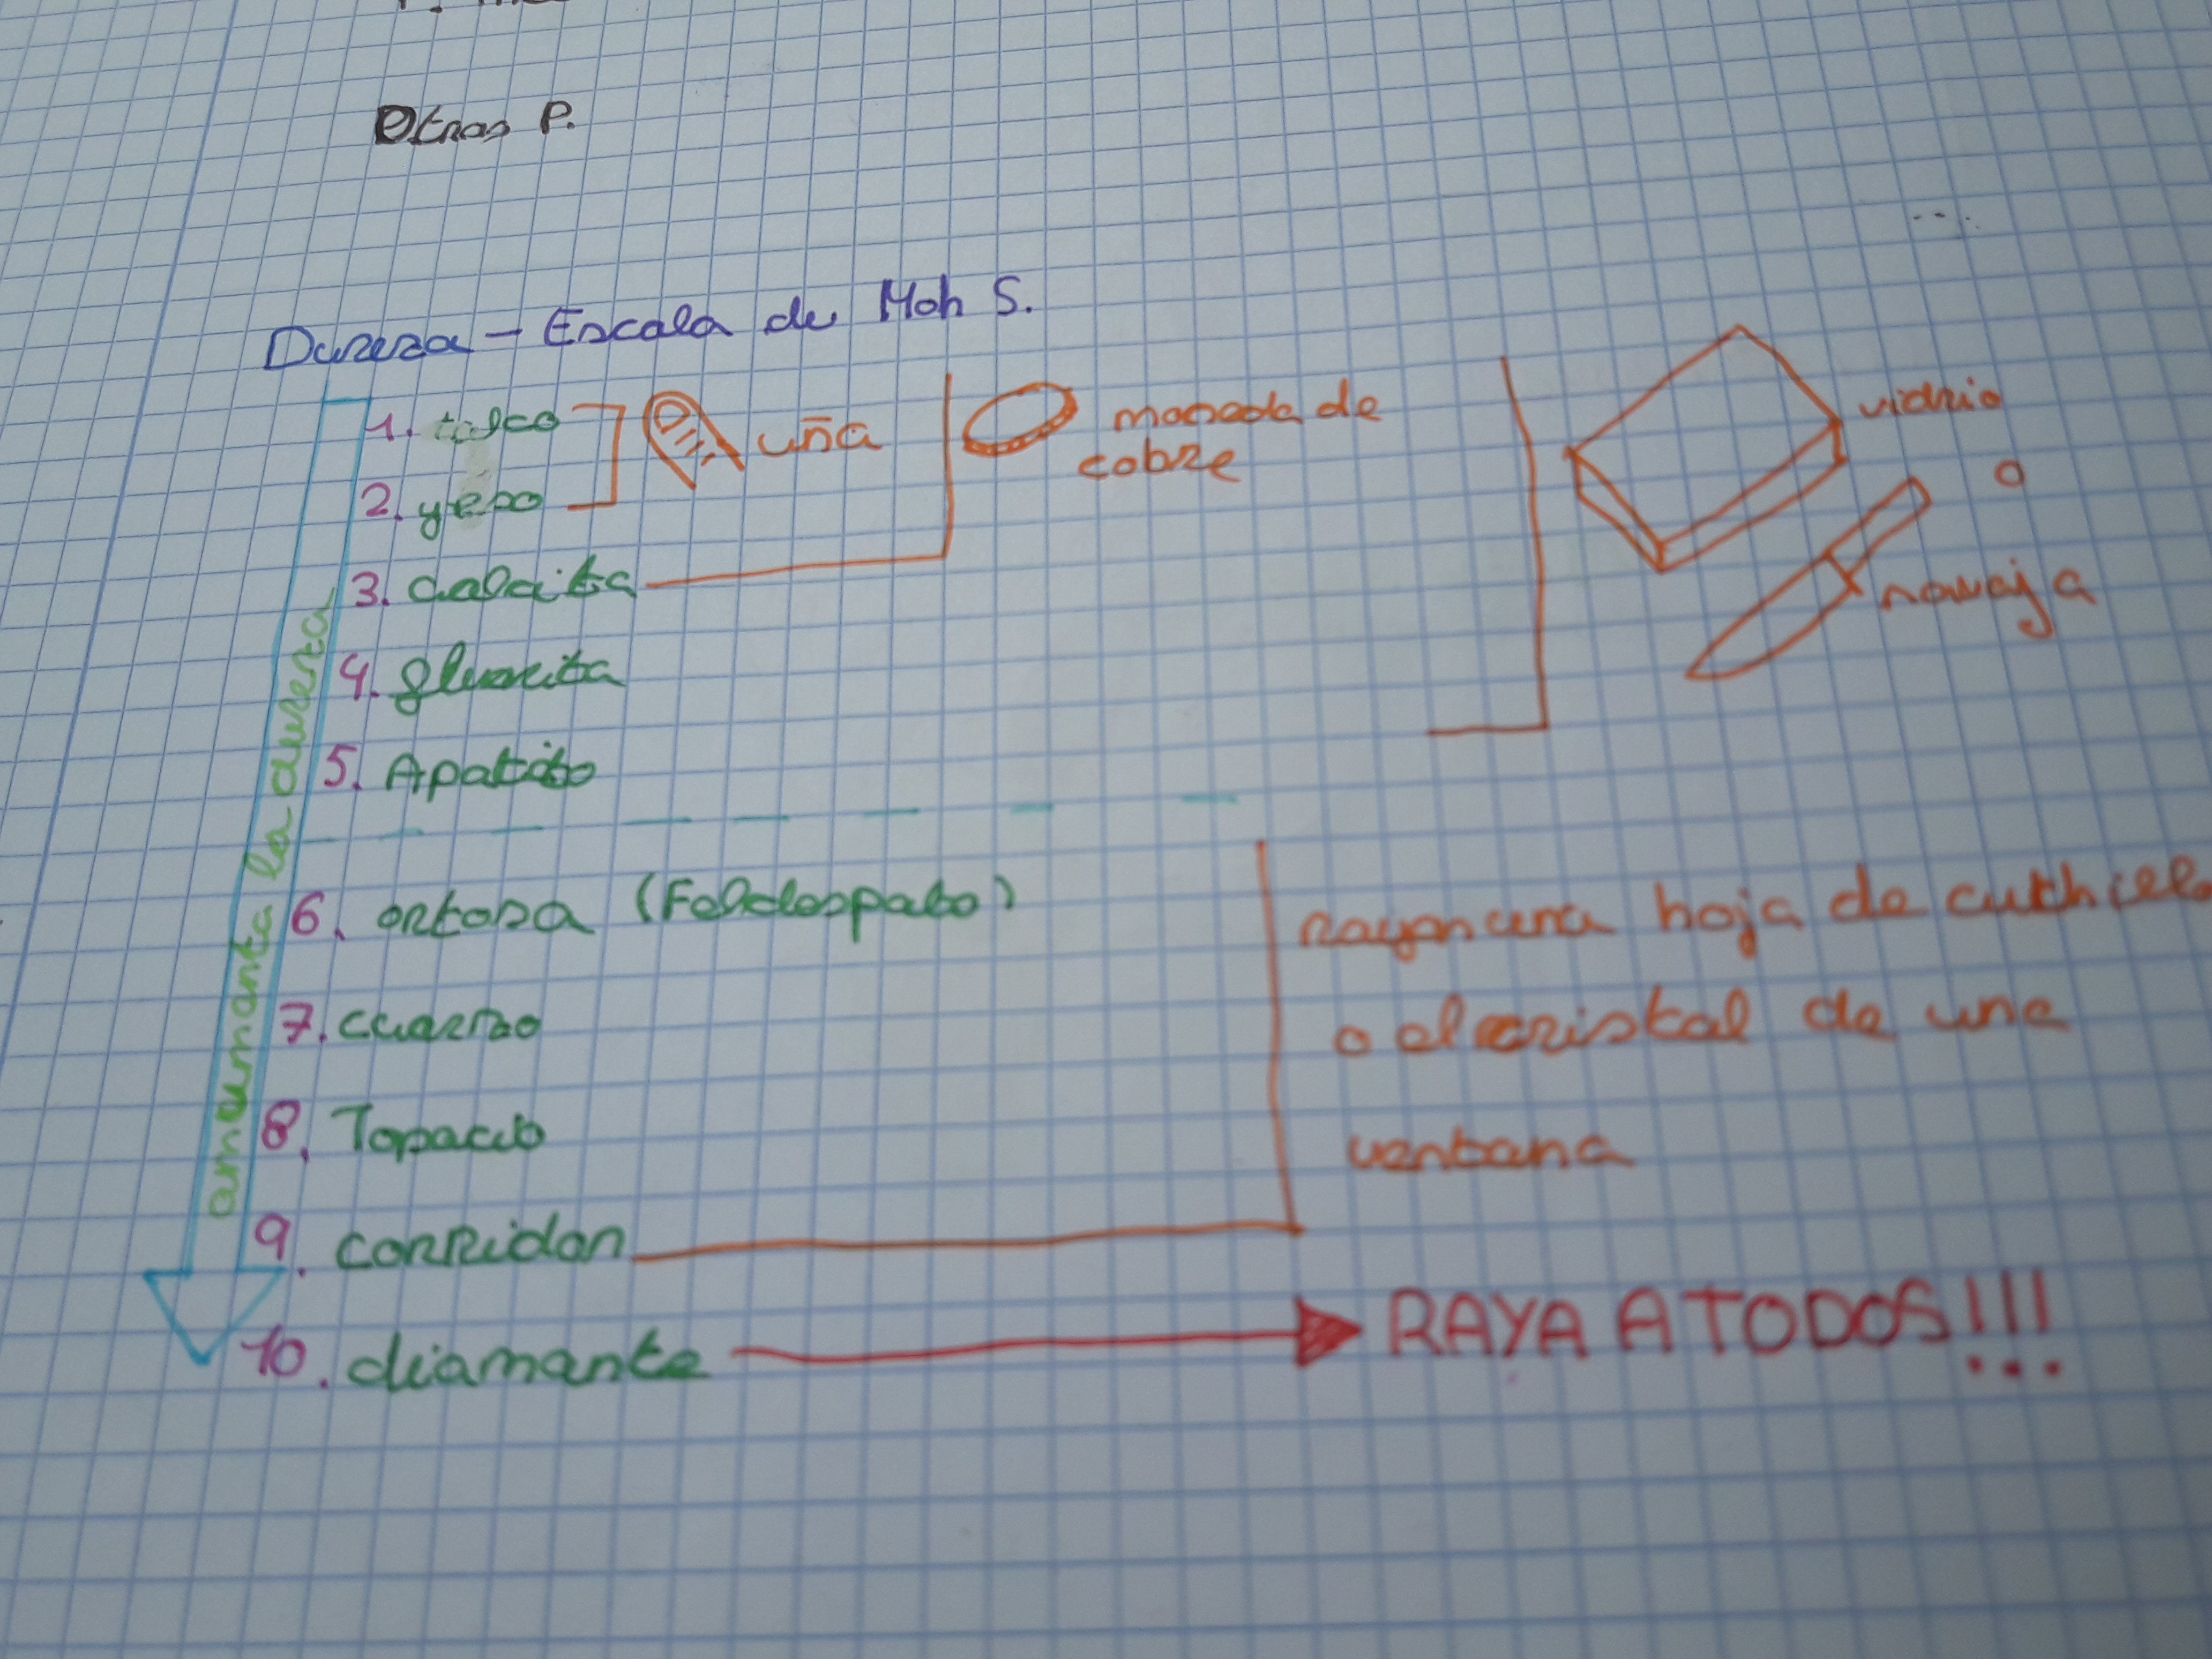 Otras P.
Dureza - Escala de Moh S.
1. talco
uña
moneda de
cobre
vidrio
o
navaja
2. yeso
3. calcita
4. fluorita
5. Apatito
aumenta la dureza
6. ortosa (Feldespato)
rayan una hoja de cuchillo
o el cristal de una
ventana
7. cuarzo
8. Topacio
9. corridon
10. diamante
RAYA A TODOS!!!